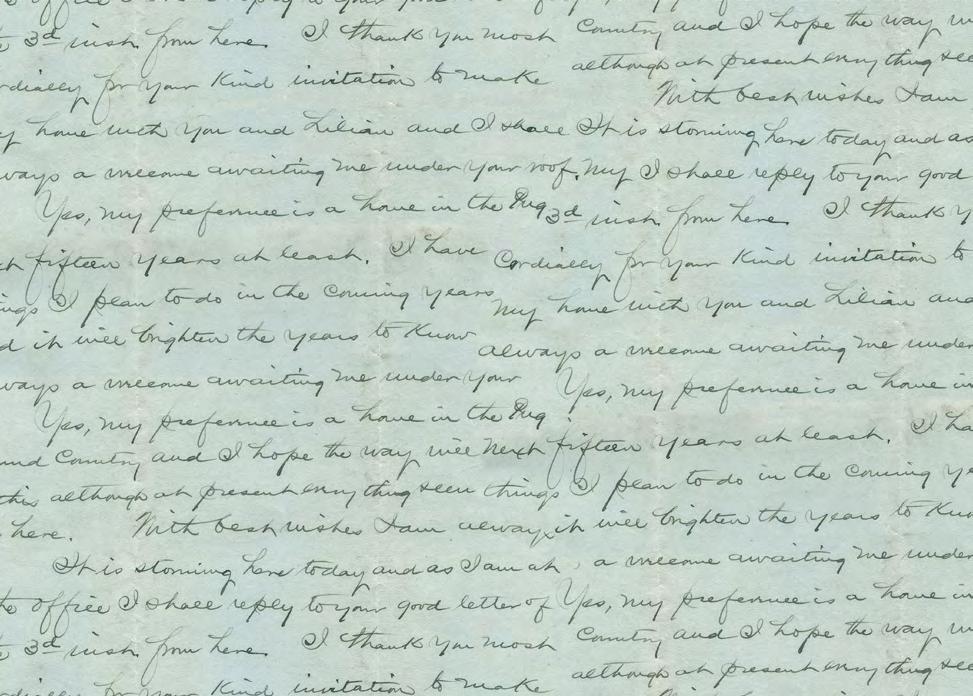 office I shall reply to your
3d inst from here. I thank you most Country and I hope the way
although at present everything see
cordially for your kind invitation to make With best wishes I am
my home with you and Lilian and I shall It is storming here today and as
always a welcome awaiting me under your roof. My I shall reply to your good
Yes, my preference is a home in the Pug 3d inst from here. I thank y
fifteen years at least. I have Cordially for your kind invitation to
ings I plan to do in the coming years My home with you and Lilian and
d it will brighten the years to know always a welcome awaiting me under
ways a welcome awaiting me under your Yes, my preference is a home in
Yes, my preference is a home in the Pug
und Country and I hope the way will next fifteen years at least. I ha
this although at present everything seem things I plan to do in the coming ye
here. With best wishes I am always it will brighten the years to know
It is storming here today and as I am at a welcome awaiting me under
the office I shall reply to your good letter of Yes, my preference is a home in
3d inst from here. I thank you most Country and I hope the way
although at present everything see
rdially for your kind invitation to make